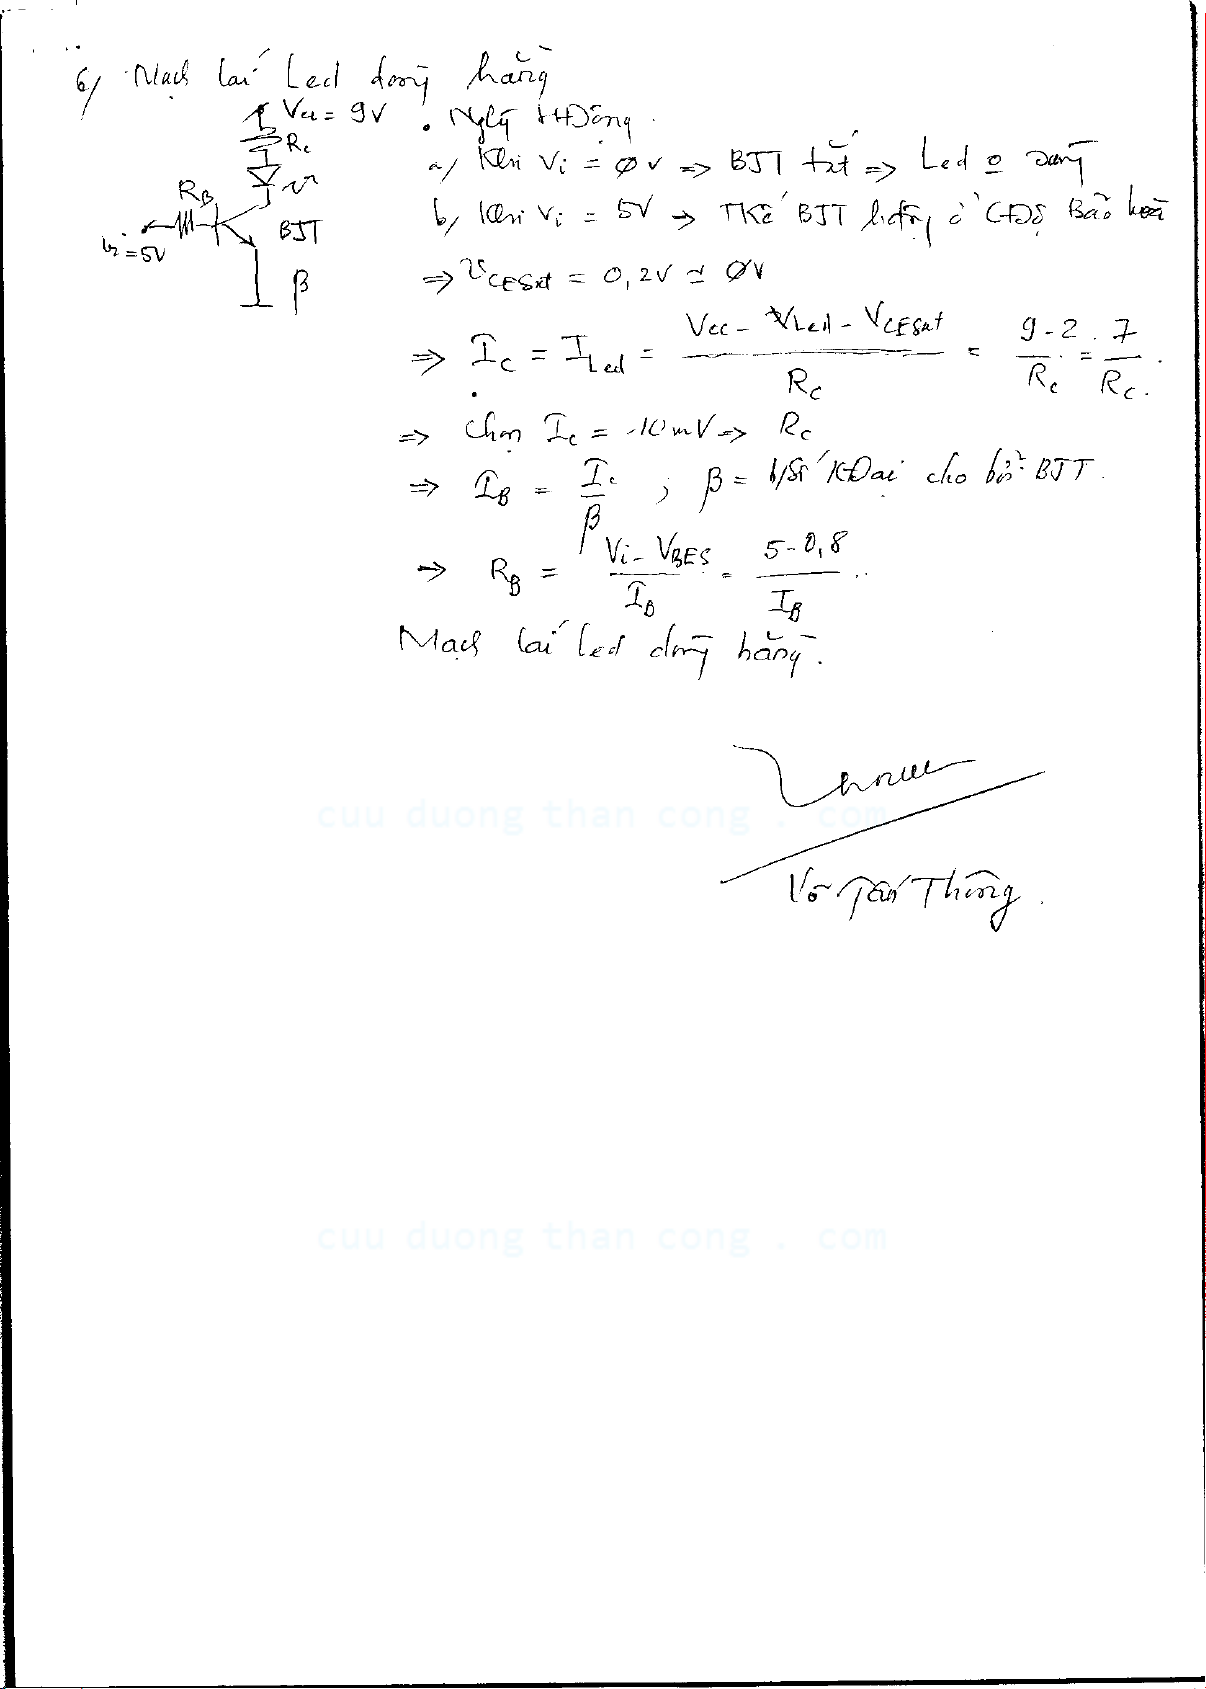 6/ Mạch lái Led dòng hằng
Vcc = 9V
Rc
RB
BJT
Vi = 5V
β
. Nglý HĐộng.
a/ Khi Vi = ØV => BJT tắt => Led o sáng
b/ Khi Vi = 5V → TKế BJT hđộng ở CĐộ Bão hoà
=> VCESat = 0,2V ≃ ØV
=> IC = ILed = (Vcc - VLed - VCESat) / Rc = (9 - 2) / Rc = 7 / Rc.
=> Chọn Ic = 10mV => Rc
=> IB = Ic / β ; β = h/số KĐại cho bởi BJT.
=> RB = (Vi - VBES) / IB = (5 - 0,8) / IB
Mạch lái led dòng hằng.
cuu duong than cong . com
Võ Tấn Thông.
cuu duong than cong . com